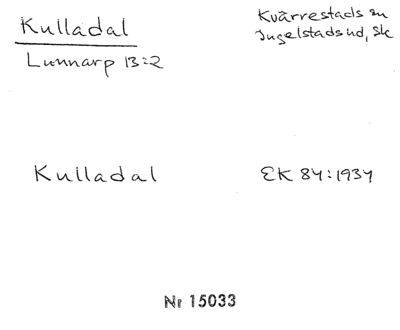 Kulladal
Kvärrestads sn
Lunnarp 13:2
Ingelstads hd, Sk
Kulladal
EK 84:1934
Nr 15033